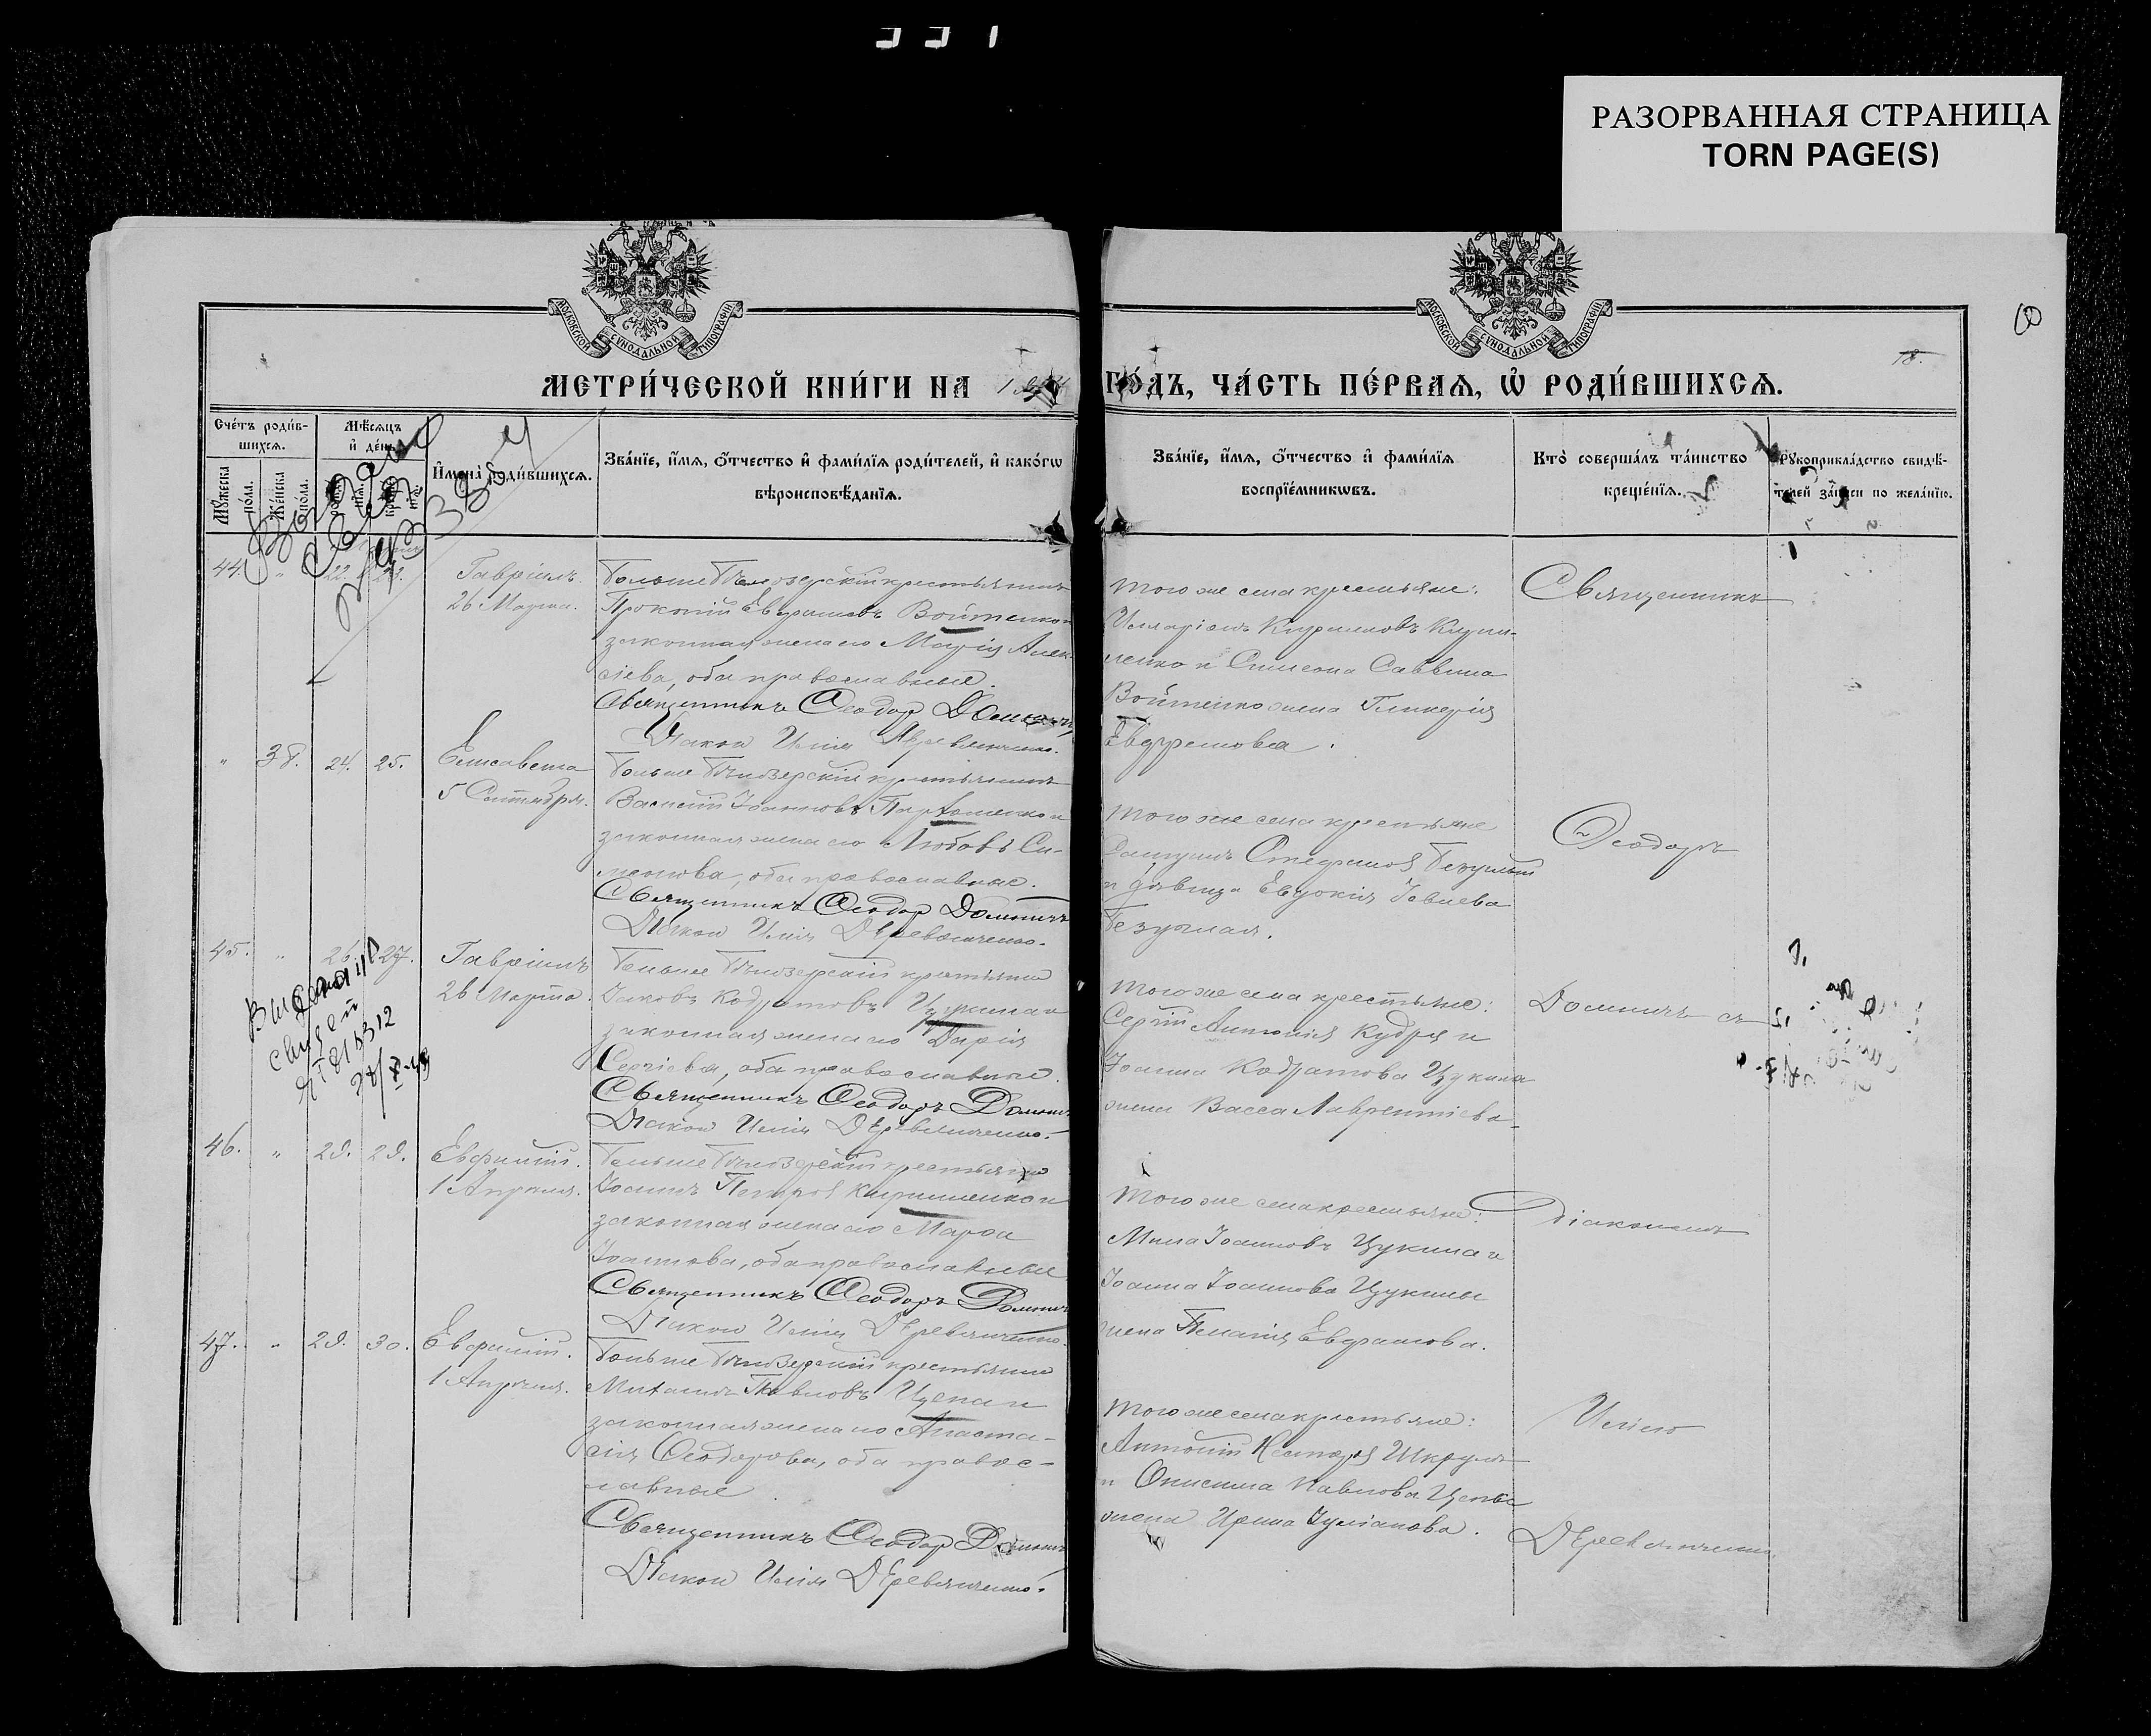 РАЗОРВАННАЯ СТРАНИЦА
TORN PAGE(S)
МОСКОВСКОЙ СѴНОДАЛЬНОЙ ТИПОГРАФІИ
МОСКОВСКОЙ СѴНОДАЛЬНОЙ ТИПОГРАФІИ
18.
МЕТРИ́ЧЕСКОЙ КНИ́ГИ НА
ГО́ДЪ, ЧА́СТЬ ПЕ́РВАѦ, Ѡ҆ РОДИ́ВШИХСѦ.
Сче́тъ роди́в-
шихсѧ.
Мꙋ́жеска по́ла.
Же́нска по́ла.
Мѣ́сѧцъ
и҆ де́нь
И҆мена̀ роди́вшихсѧ.
Зва́нїе, и҆́мѧ, ѻ҆́тчество и҆ фами́лїѧ роди́телей, и҆ како́гѡ
вѣроисповѣ́данїѧ.
Зва́нїе, и҆́мѧ, ѻ҆́тчество и҆ фами́лїѧ
воспрїе́мникѡвъ.
Кто̀ соверша́лъ та́инство
креще́нїѧ.
Рꙋкоприкла́дство свидѣ́-
телей за́писи по жела́нїю.
44. " 22.
Гавріилъ
26 Марта.
Больше Бѣлозерскій крестьянинъ
Прокопій Евфимовъ Войтенко и
законная жена его Марія Алек-
сіева, оба православные.
Священникъ Ѳеодор Домонтъ
Діакон Илія Деревянченко.
Того же села крестьяне:
Илларіонъ Кирилловъ Кири-
ленко и Симеона Саввина
Войтенко жена Гликерія
Евфимова.
Священникъ
" 38. 24. 25.
Елисавета
5 Сентября.
Больше Бѣлозерскій крестьянинъ
Василій Іоанновъ Пархоменко и
законная жена его Любовь Си-
меонова, оба православные.
Священникъ Ѳеодор Домонтъ
Діакон Илія Деревянченко.
Того же села крестьяне
Стефановъ Безуглый
и дѣвица Евдокія Іовлева
Безуглая.
Ѳеодоръ
45. " 26. 27.
Гавріилъ
26 Марта.
Больше Бѣлозерскій крестьянинъ
Іаковъ Кодратовъ Цукина и
законная жена его Дарія
Сергіева, оба православные.
Священникъ Ѳеодоръ Домонтъ
Діакон Илія Деревянченко.
Того же села крестьяне:
Сергій Антоніев Кудря и
Іоанна Кодратова Цукина
жена Васса Лаврентіева.
Домонтъ съ
46. " 29. 29.
Евфимій.
1 Апрѣля.
Больше Бѣлозерскій крестьянинъ
Іоаннъ Петров Кириленко и
законная жена его Марѳа
Іоаннова, оба православные
Священникъ Ѳеодоръ Домонтъ
Діакон Илія Деревянченко.
Того же села крестьяне:
Мина Іоанновъ Цукина и
Іоанна Іоаннова Цукины
жена Пелагія Евфимова.
Діакономъ
47. " 29. 30.
Евфимій.
1 Апрѣля.
Больше Бѣлозерскій крестьянинъ
Михаилъ Павловъ Цепа и
законная жена его Анаста-
сія Ѳеодорова, оба правос-
лавные
Священникъ Ѳеодор Домонтъ
Діакон Илія Деревянченко.
Того же села крестьяне:
Антоній Несторов Шкруль
и Онисима Павлова Цепы
жена Ирина Іуліанова.
Иліею
Деревянченко